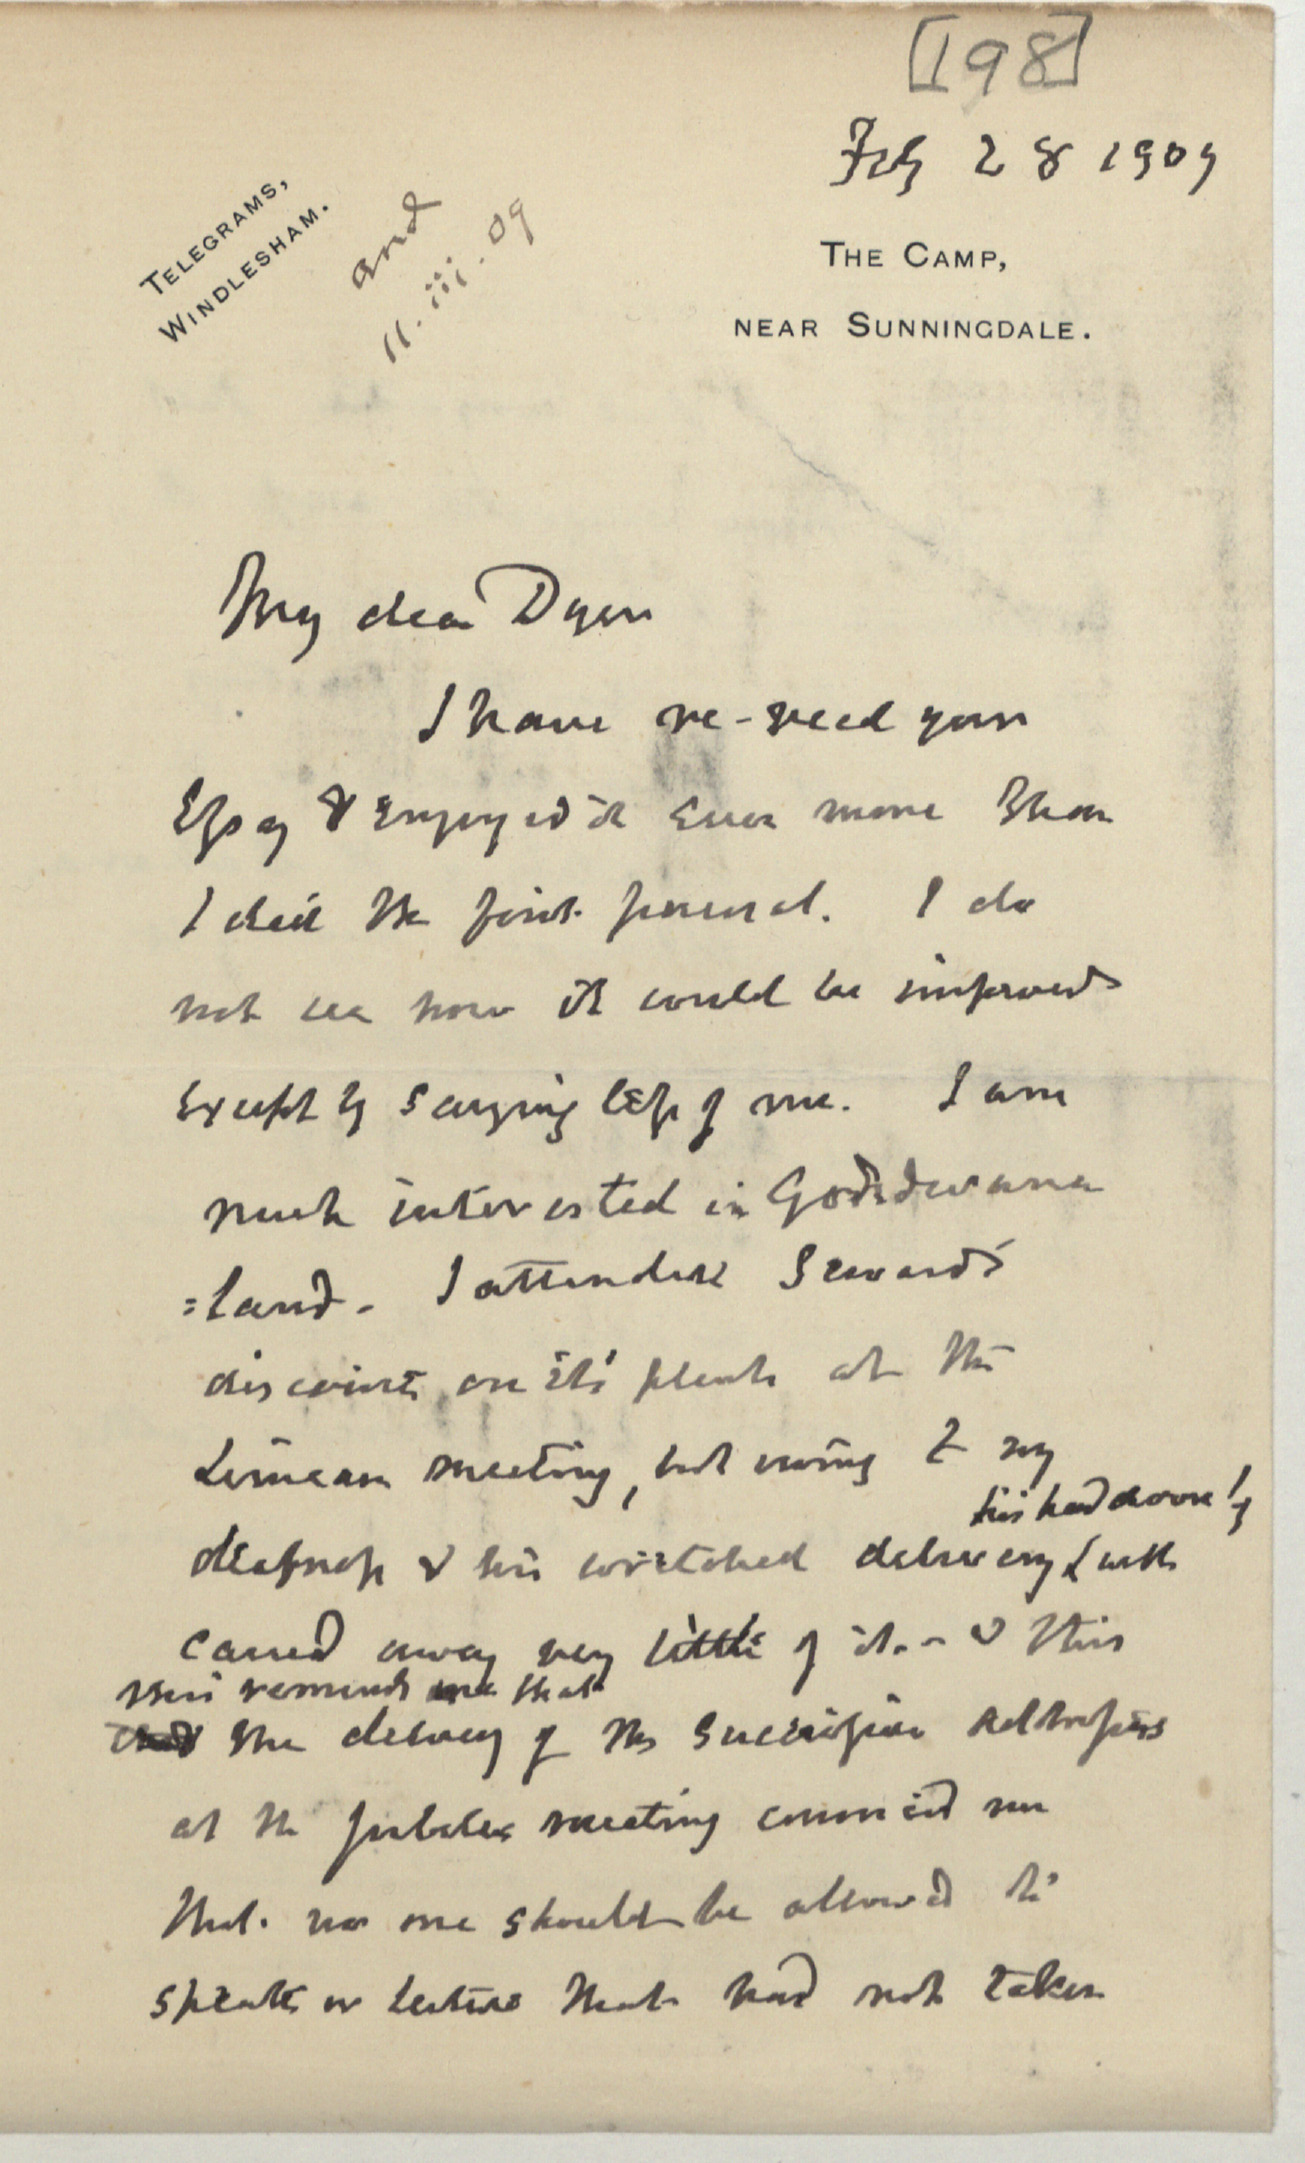 [198]
Feby 28 1909
TELEGRAMS,
WINDLESHAM.
and
11.iii.09
THE CAMP,
NEAR SUNNINGDALE.
My dear Dyer
I have re-read your
Essay & enjoyed it even more than
I did the first perusal. I do
not see how it could be improved
except by saying less of me. I am
much interested in Gondwana
=land. I attended Seward's
discourse on its plants at the
Linnean meeting, but owing to my
his head down
deafness & his wretched delivery with
carried away very little of it. - & this
this reminds me that
the delivery of the successive addresses
at the Jubilee meeting convinced me
that no one should be allowed to
speak or lecture that had not taken